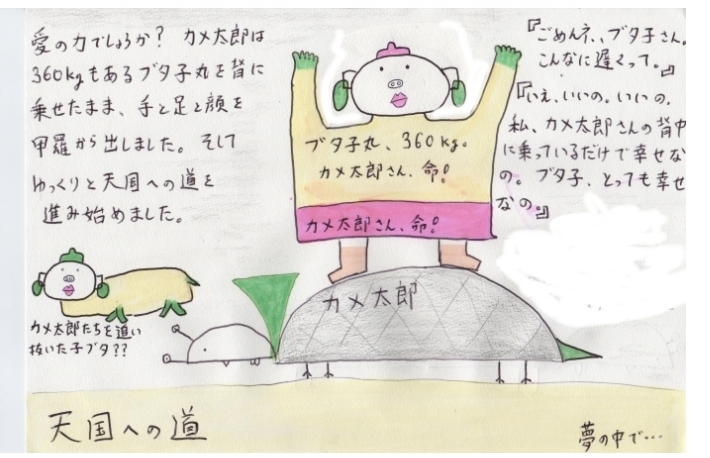 愛の力でしょうか？ カメ太郎は
360kgもあるブタ子丸を背に
乗せたまま、手と足と顔を
甲羅から出しました。そして
ゆっくりと天国への道を
進み始めました。
『ごめんネ、ブタ子さん。
こんなに遅くって。』
『いえ、いいの。いいの。
私、カメ太郎さんの背中
に乗っているだけで幸せな
の。ブタ子、とっても幸せ
なの。』
ブタ子丸、360kg。
カメ太郎さん、命！
カメ太郎さん、命！
カメ太郎
カメ太郎たちを追い
抜いた子ブタ??
天国への道
夢の中で…